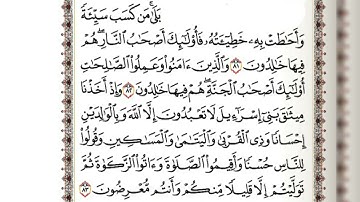 بَلَىٰ مَن كَسَبَ سَيِّئَةً
وَأَحَاطَتْ بِهِۦ خَطِيٓـَٔتُهُۥ فَأُوْلَٰٓئِكَ أَصْحَٰبُ النَّارِ هُمْ
فِيهَا خَٰلِدُونَ ٨١ وَالَّذِينَ ءَامَنُواْ وَعَمِلُواْ الصَّٰلِحَٰتِ
أُوْلَٰٓئِكَ أَصْحَٰبُ الْجَنَّةِ هُمْ فِيهَا خَٰلِدُونَ ٨٢ وَإِذْ أَخَذْنَا
مِيثَٰقَ بَنِىٓ إِسْرَٰٓءِيلَ لَا تَعْبُدُونَ إِلَّا اللَّهَ وَبِالْوَٰلِدَيْنِ
إِحْسَانًا وَذِى الْقُرْبَىٰ وَالْيَتَٰمَىٰ وَالْمَسَٰكِينِ وَقُولُواْ
لِلنَّاسِ حُسْنًا وَأَقِيمُواْ الصَّلَوٰةَ وَءَاتُواْ الزَّكَوٰةَ ثُمَّ
تَوَلَّيْتُمْ إِلَّا قَلِيلًا مِّنكُمْ وَأَنتُم مُّعْرِضُونَ ٨٣